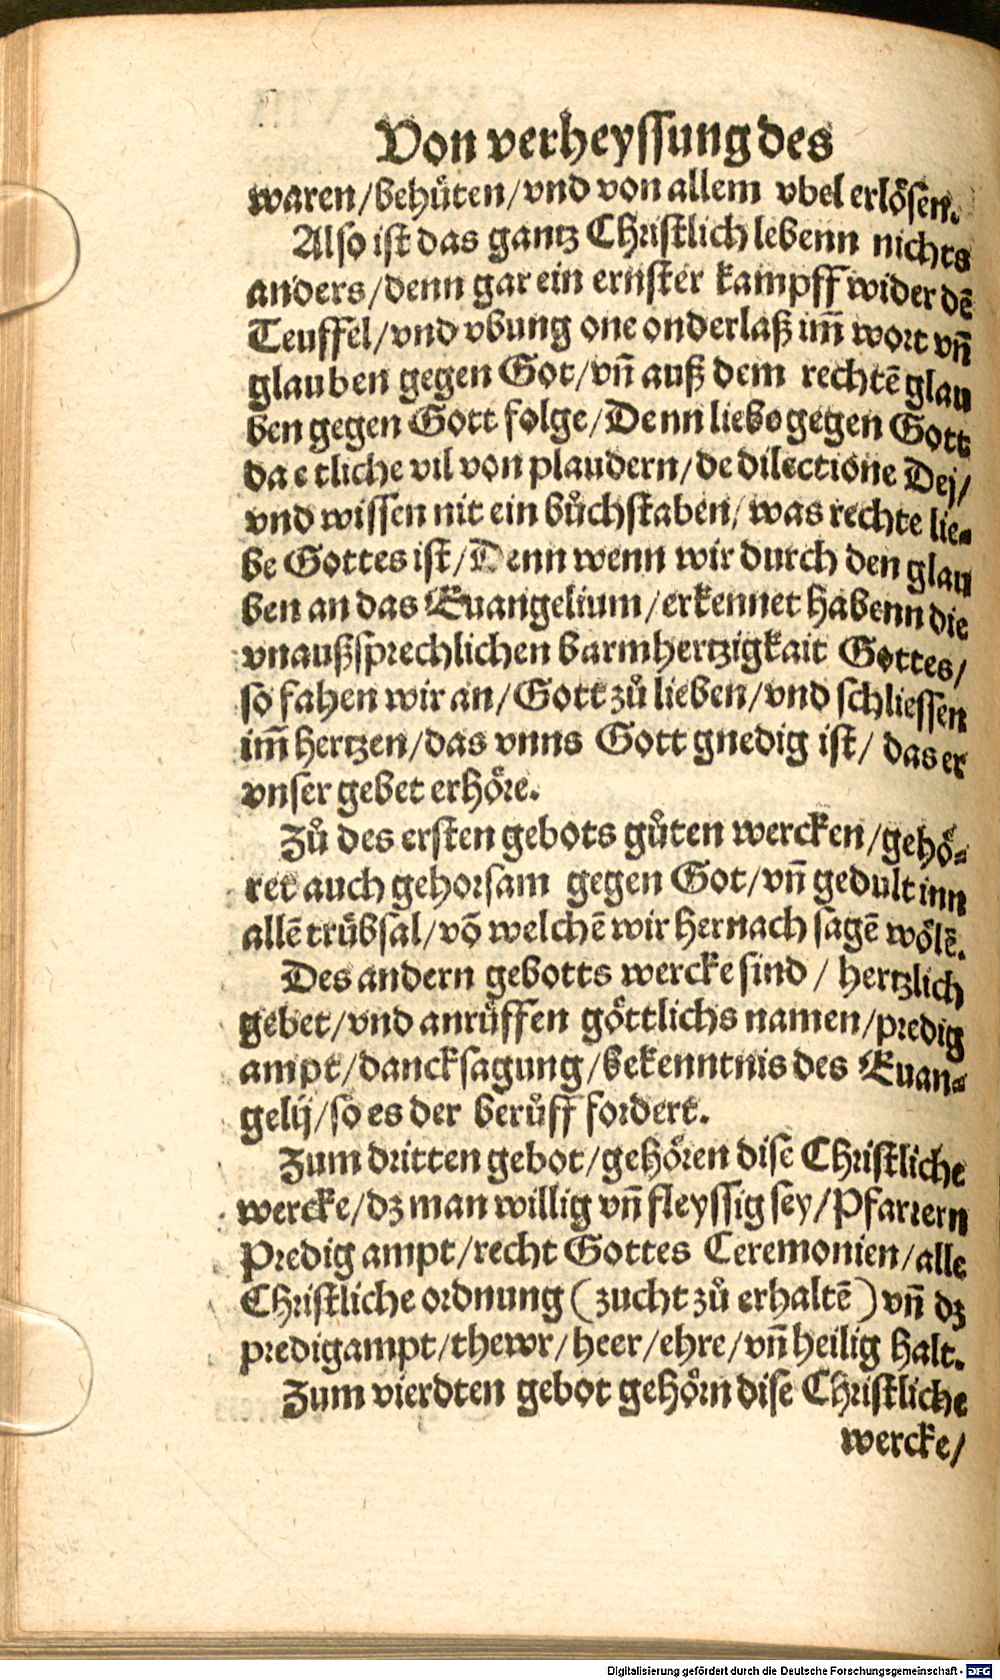 Von verheyssung des
waren/behuͤten/vnd von allem vbel erloͤsen.
Also ist das gantz Christlich lebenn nichts
anders/denn gar ein ernster kampff wider dē
Teuffel/vnd vbung one onderlaß im̄ wort vn̄
glauben gegen Got/vn̄ auß dem rechtē glau
ben gegen Gott folge/Denn liebe gegen Gott
da etliche vil von plaudern/de dilectione Dej/
vnd wissen nit ein buͦchstaben/was rechte lie-
be Gottes ist/Denn wenn wir durch den glau
ben an das Euangelium/erkennet habenn die
vnaußsprechlichen barmhertzigkait Gottes/
so fahen wir an/Gott zuͦ lieben/vnd schliessen
im̄ hertzen/das vnns Gott gnedig ist/ das er
vnser gebet erhoͤre.
Zuͦ des ersten gebots guͦten wercken/gehoͤ-
ret auch gehorsam gegen Got/vn̄ gedult inn
allē truͤbsal/vō welchē wir hernach sagē woͤlē.
Des andern gebotts wercke sind / hertzlich
gebet/vnd anruͤffen goͤttlichs namen/predig
ampt/dancksagung/bekenntnis des Euan-
gelij/so es der beruͦff fordert.
Zum dritten gebot/gehoͤren dise Christliche
wercke/dz man willig vn̄ fleyssig sey/Pfarrern
Predig ampt/recht Gottes Ceremonien/alle
Christliche ordnung (zucht zuͦ erhaltē) vn̄ dz
predigampt/thewr/heer/ehre/vn̄ heilig halt.
Zum vierdten gebot gehoͤrn dise Christliche
wercke/
Digitalisierung gefördert durch die Deutsche Forschungsgemeinschaft - DFG